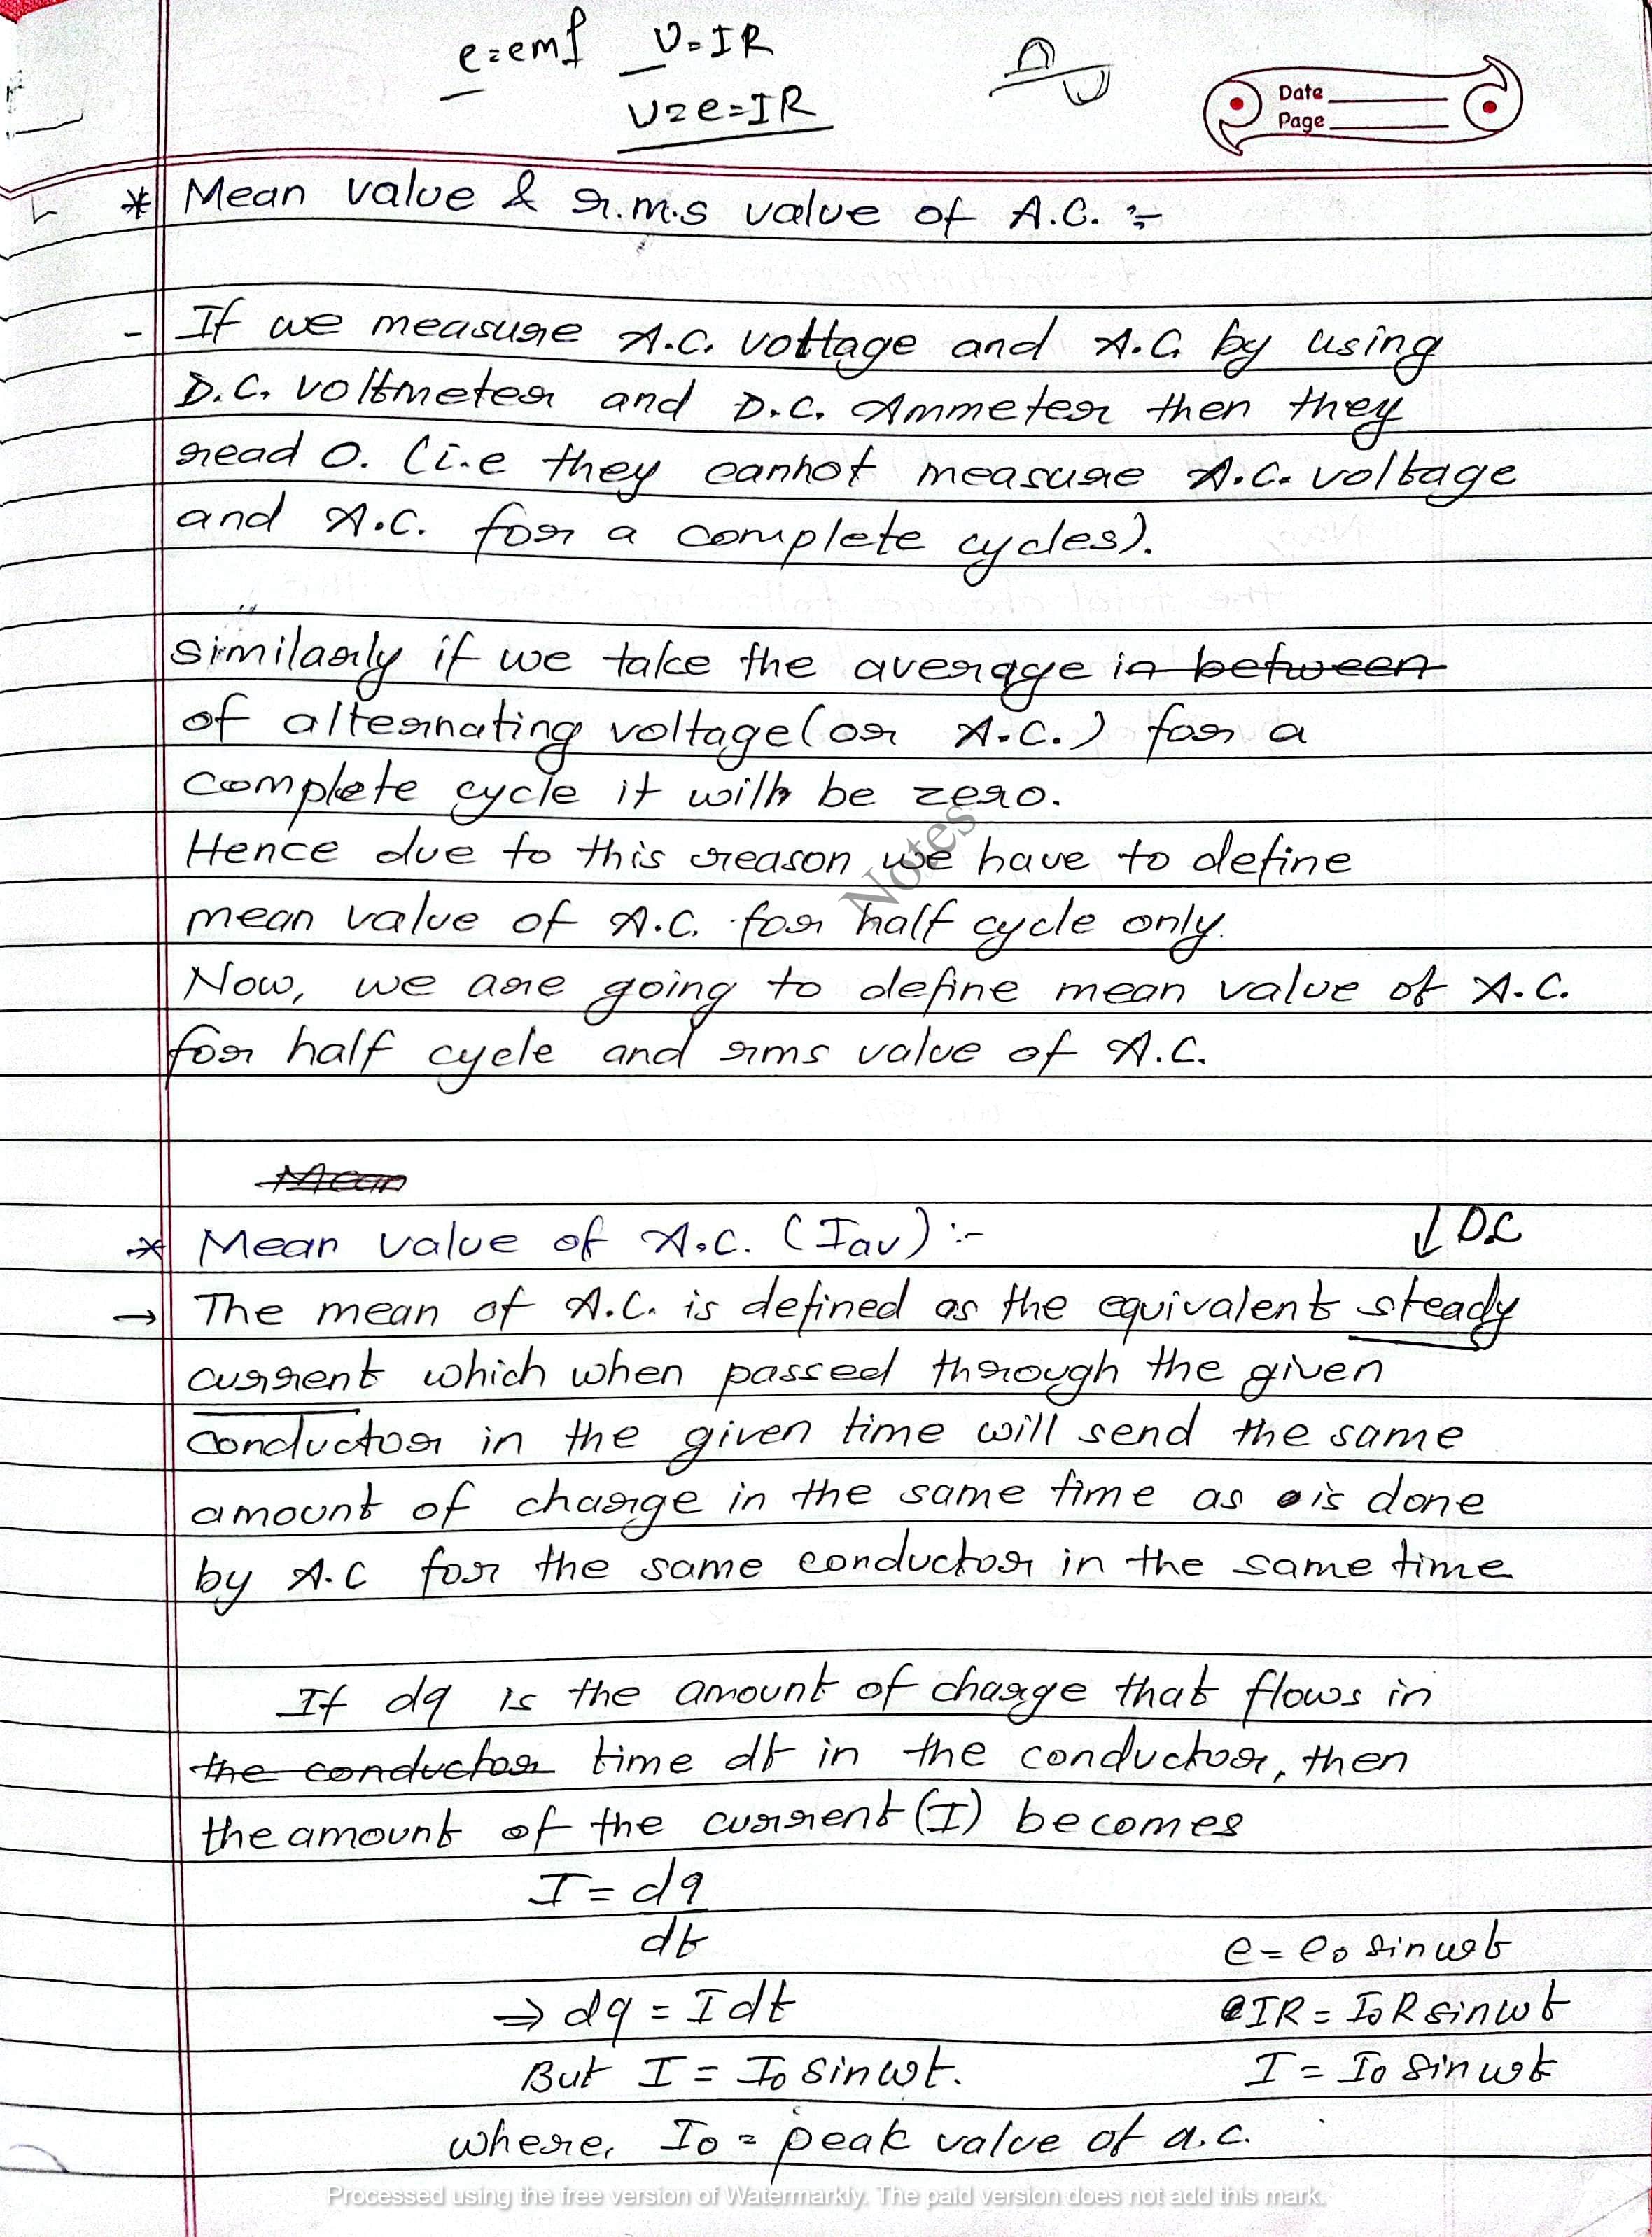 e=emf V=IR
V=e=IR
Date
Page
* Mean value & r.m.s value of A.C. :-
- If we measure A.C. voltage and A.C. by using
D.C. voltmeter and D.C. Ammeter then they
read 0. (i.e they cannot measure A.C. voltage
and A.C. for a complete cycles).
similarly if we take the average in between
of alternating voltage (or A.C.) for a
complete cycle it will be zero.
Hence due to this reason we have to define
mean value of A.C. for half cycle only.
Now, we are going to define mean value of A.C.
for half cycle and rms value of A.C.
Notes
Mean
* Mean value of A.C. (Iav) :- ↓ D.C
→ The mean of A.C. is defined as the equivalent steady
current which when passed through the given
conductor in the given time will send the same
amount of charge in the same time as is done
by A.C for the same conductor in the same time
If dq is the amount of charge that flows in
the conductor time dt in the conductor, then
the amount of the current (I) becomes
I = dq
dt
e = e₀ sin ωt
⇒ dq = I dt
IR = I₀R sin ωt
But I = I₀ sin ωt.
I = I₀ sin ωt
where, I₀ = peak value of a.c.
Processed using the free version of Watermarkly. The paid version does not add this mark.